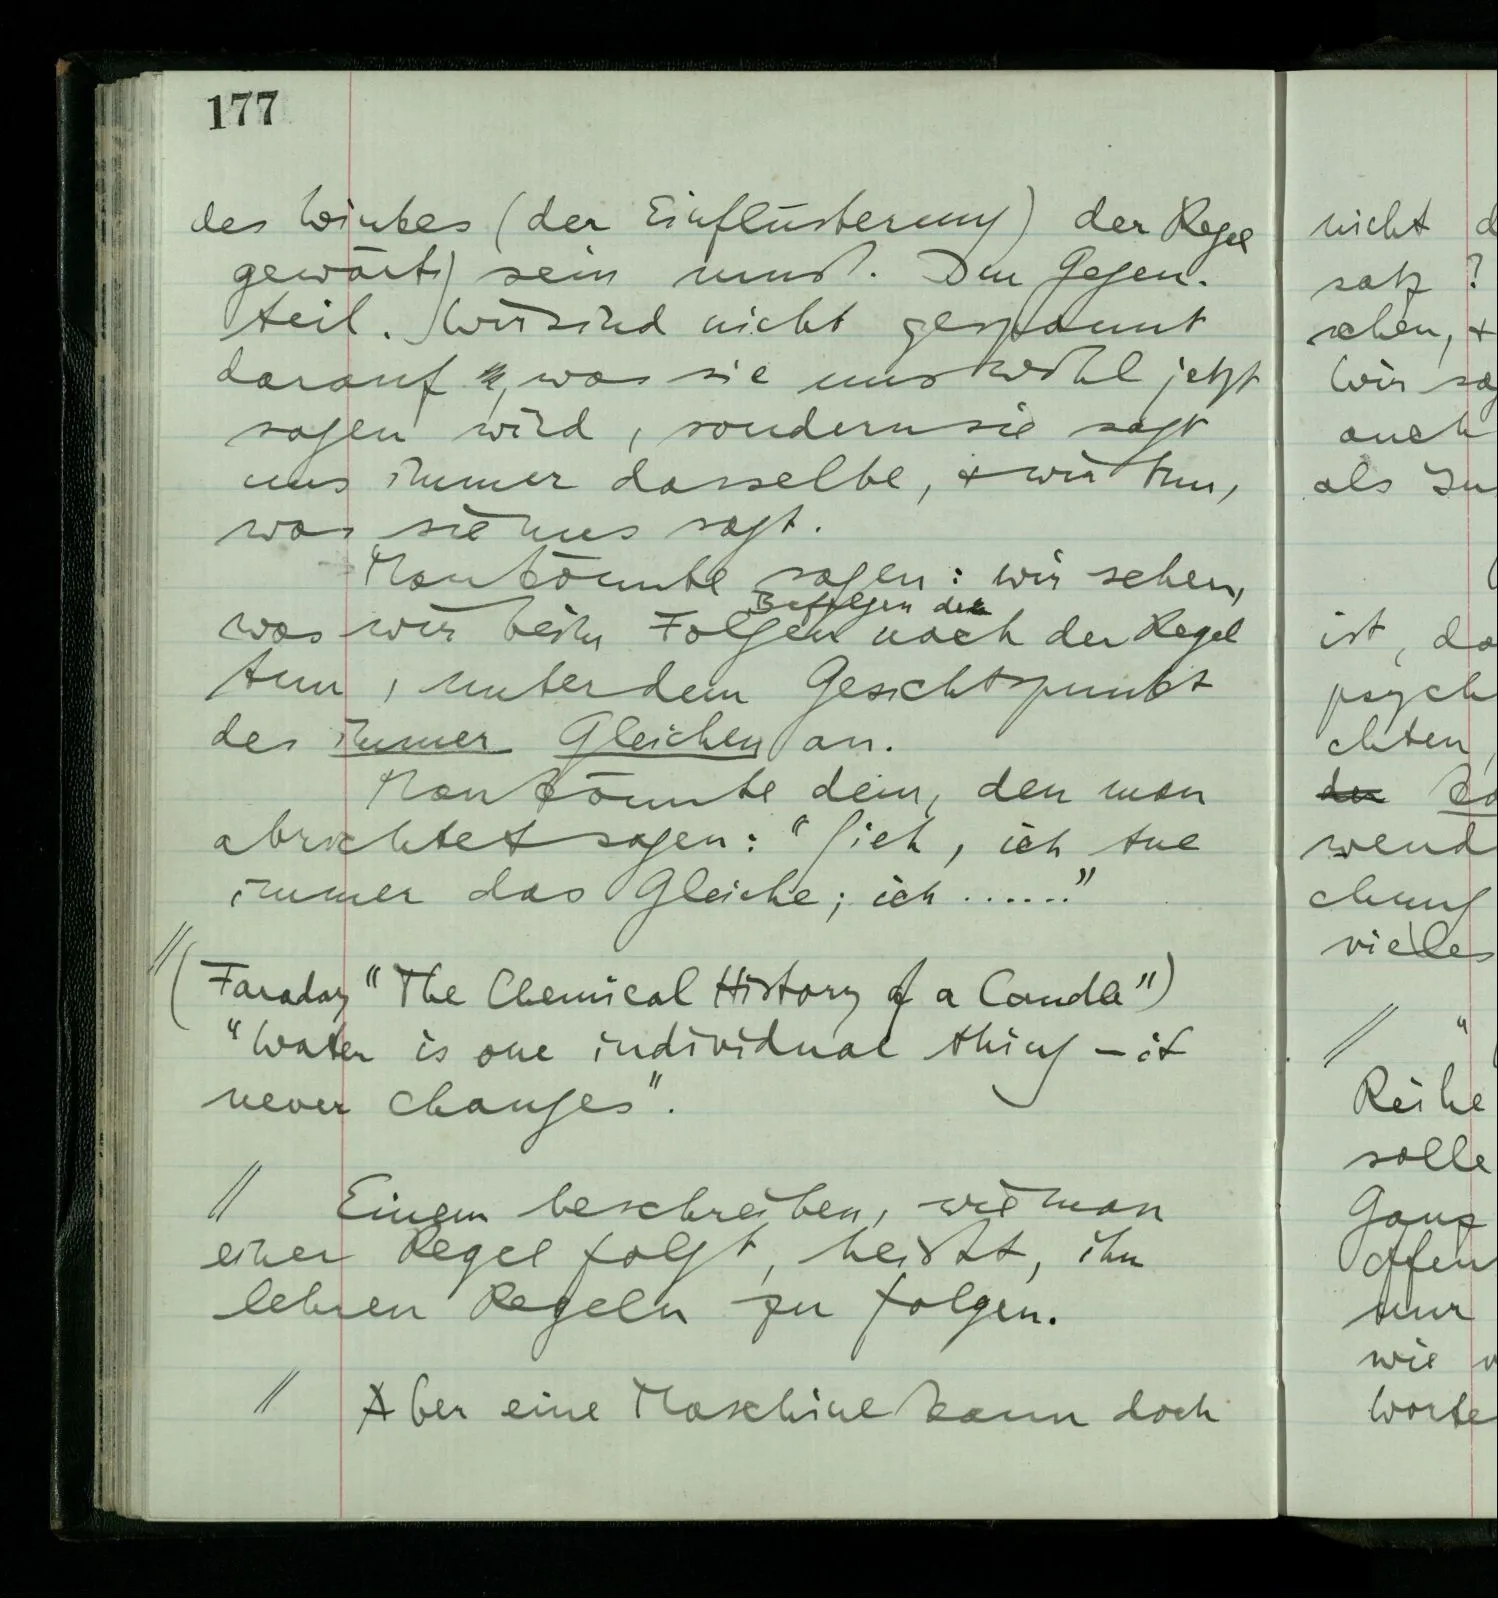 177
des Winkes (der Einflüsterung) der Regel
gewärtig sein muss. Im Gegen-
teil. Wir sind nicht gespannt
darauf, was sie uns wohl jetzt
sagen wird, sondern sie sagt
uns immer dasselbe, + wir tun,
was sie uns sagt.
Man könnte sagen: wir sehen,
Befolgen der
was wir beim Folgen nach der Regel
tun, unter dem Gesichtspunkt
des immer Gleichen an.
Man könnte dem, den man
abrichtet sagen: "Sieh, ich tue
immer das Gleiche; ich ......"
// (Faraday "The Chemical History of a Candle")
"Water is one individual thing – it
never changes".
// Einem beschreiben, wie man
einer Regel folgt, heisst, ihn
lehren Regeln zu folgen.
// Aber eine Maschine kann doch
nicht d
satz?
sehen, +
Wir sag
auch
als In
ist, da
psych
chten,
der
wend
chung
vieles
// "
Reihe
solle
Ganz
offen
nur
wie
Worte